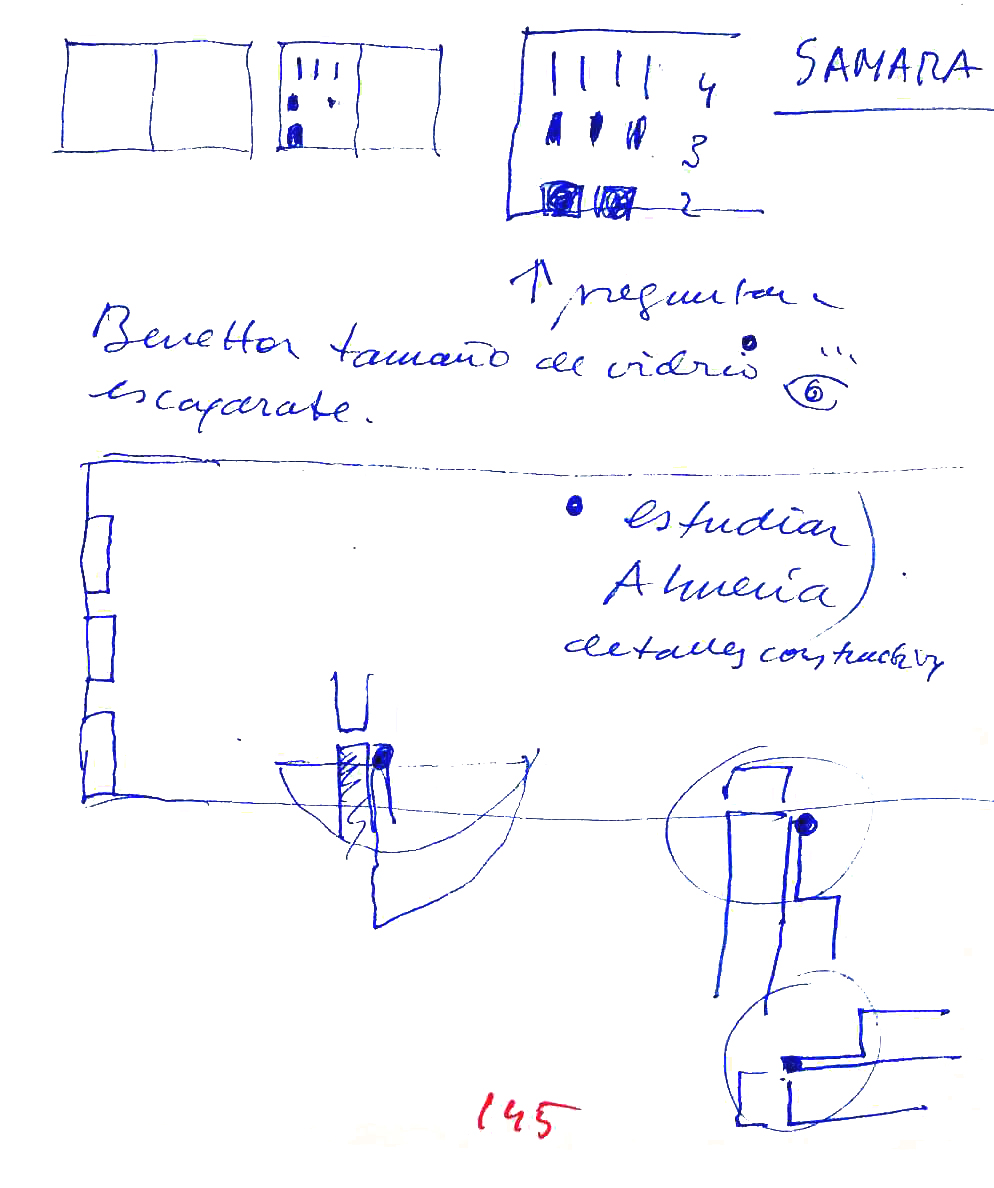 SAMARA
4
3
2
↑ preguntar
Benetton tamaño de vidrio
escaparate.
estudiar
Almería
detalles constructivos
145